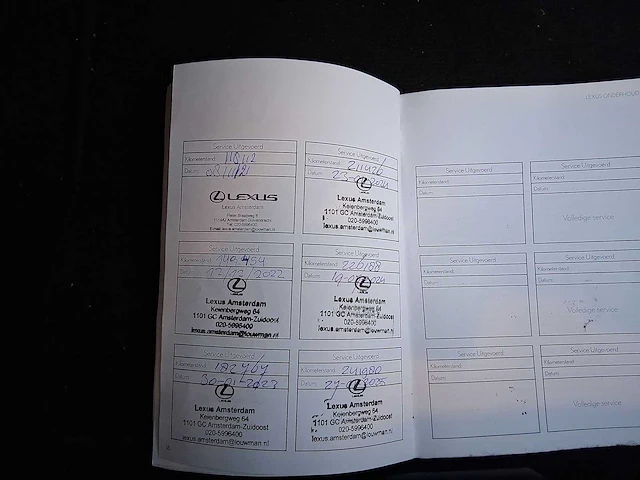 LEXUS ONDERHOUD
Service Uitgevoerd
Kilometerstand:
Datum:
LEXUS
Lexus Amsterdam
Service Uitgevoerd
Kilometerstand: 211426
Datum: 23-
Lexus Amsterdam
Keienbergweg 64
1101 GC Amsterdam-Zuidoost
020-5996400
lexus.amsterdam@louwman.nl
Service Uitgevoerd
Kilometerstand:
Datum: 12/12/2022
Lexus Amsterdam
Keienbergweg 64
1101 GC Amsterdam-Zuidoost
020-5996400
lexus.amsterdam@louwman.nl
Service Uitgevoerd
Kilometerstand: 226188
Datum:
Lexus Amsterdam
Keienbergweg 64
1101 GC Amsterdam-Zuidoost
020-5996400
lexus.amsterdam@louwman.nl
Service Uitgevoerd
Kilometerstand: 182767
Datum: 30-01-2023
Lexus Amsterdam
Keienbergweg 64
1101 GC Amsterdam-Zuidoost
020-5996400
lexus.amsterdam@louwman.nl
Service Uitgevoerd
Kilometerstand: 241900
Datum:
Lexus Amsterdam
Keienbergweg 64
1101 GC Amsterdam-Zuidoost
020-5996400
lexus.amsterdam@louwman.nl
Service Uitgevoerd
Kilometerstand:
Datum:
Service Uitgevoerd
Kilometerstand:
Datum:
Volledige service
Service Uitgevoerd
Kilometerstand:
Datum:
Service Uitgevoerd
Kilometerstand:
Datum:
Volledige service
Service Uitgevoerd
Kilometerstand:
Datum:
Service Uitgevoerd
Kilometerstand:
Datum:
Volledige service